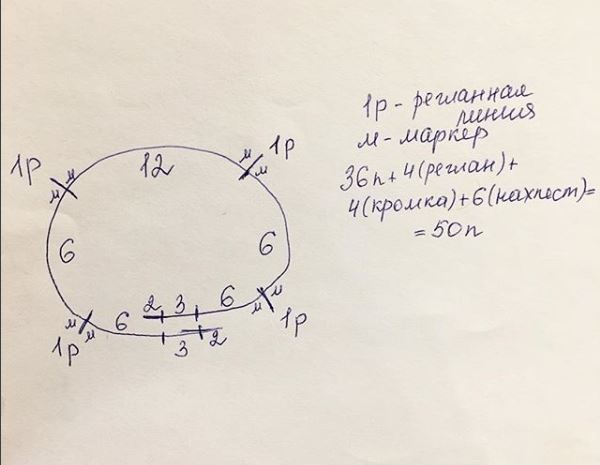 1р - регланная
линия
м - маркер
36п + 4(реглан) +
4(кромка) + 6(нахлест) =
= 50п
1р м м 12 м м 1р
6 6
м м 1р 6 2 3 6 м м 1р
3 2